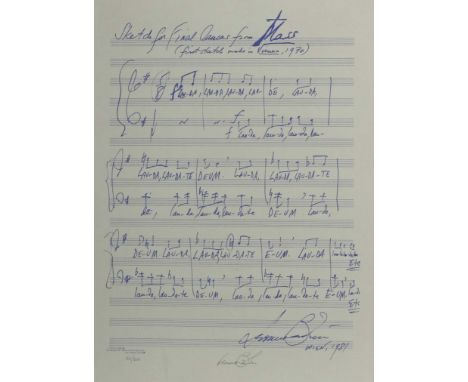 Sketch for Final Canons from Mass
(first sketch made in Vienna, 1970)
LAU-DA, LAU-DA, LAU-DA, LAU- DE, LAU-DA,
f Lau-da, lau-da, lau-da, lau-
LAU-DA, LAU-DA-TE DE-UM. LAU-DA, LAU-DA, LAU-DA-TE
da, lau-da, lau-da-te DE-UM Lau-da,
DE-UM LAU-DA, LAU-DA, LAU-DA-TE E-UM. LAU-DA
lau-da, lau-da-te DE-UM, lau-da, lau-da, lau-da-te E-UM.
Etc
Etc
Wien, 1981